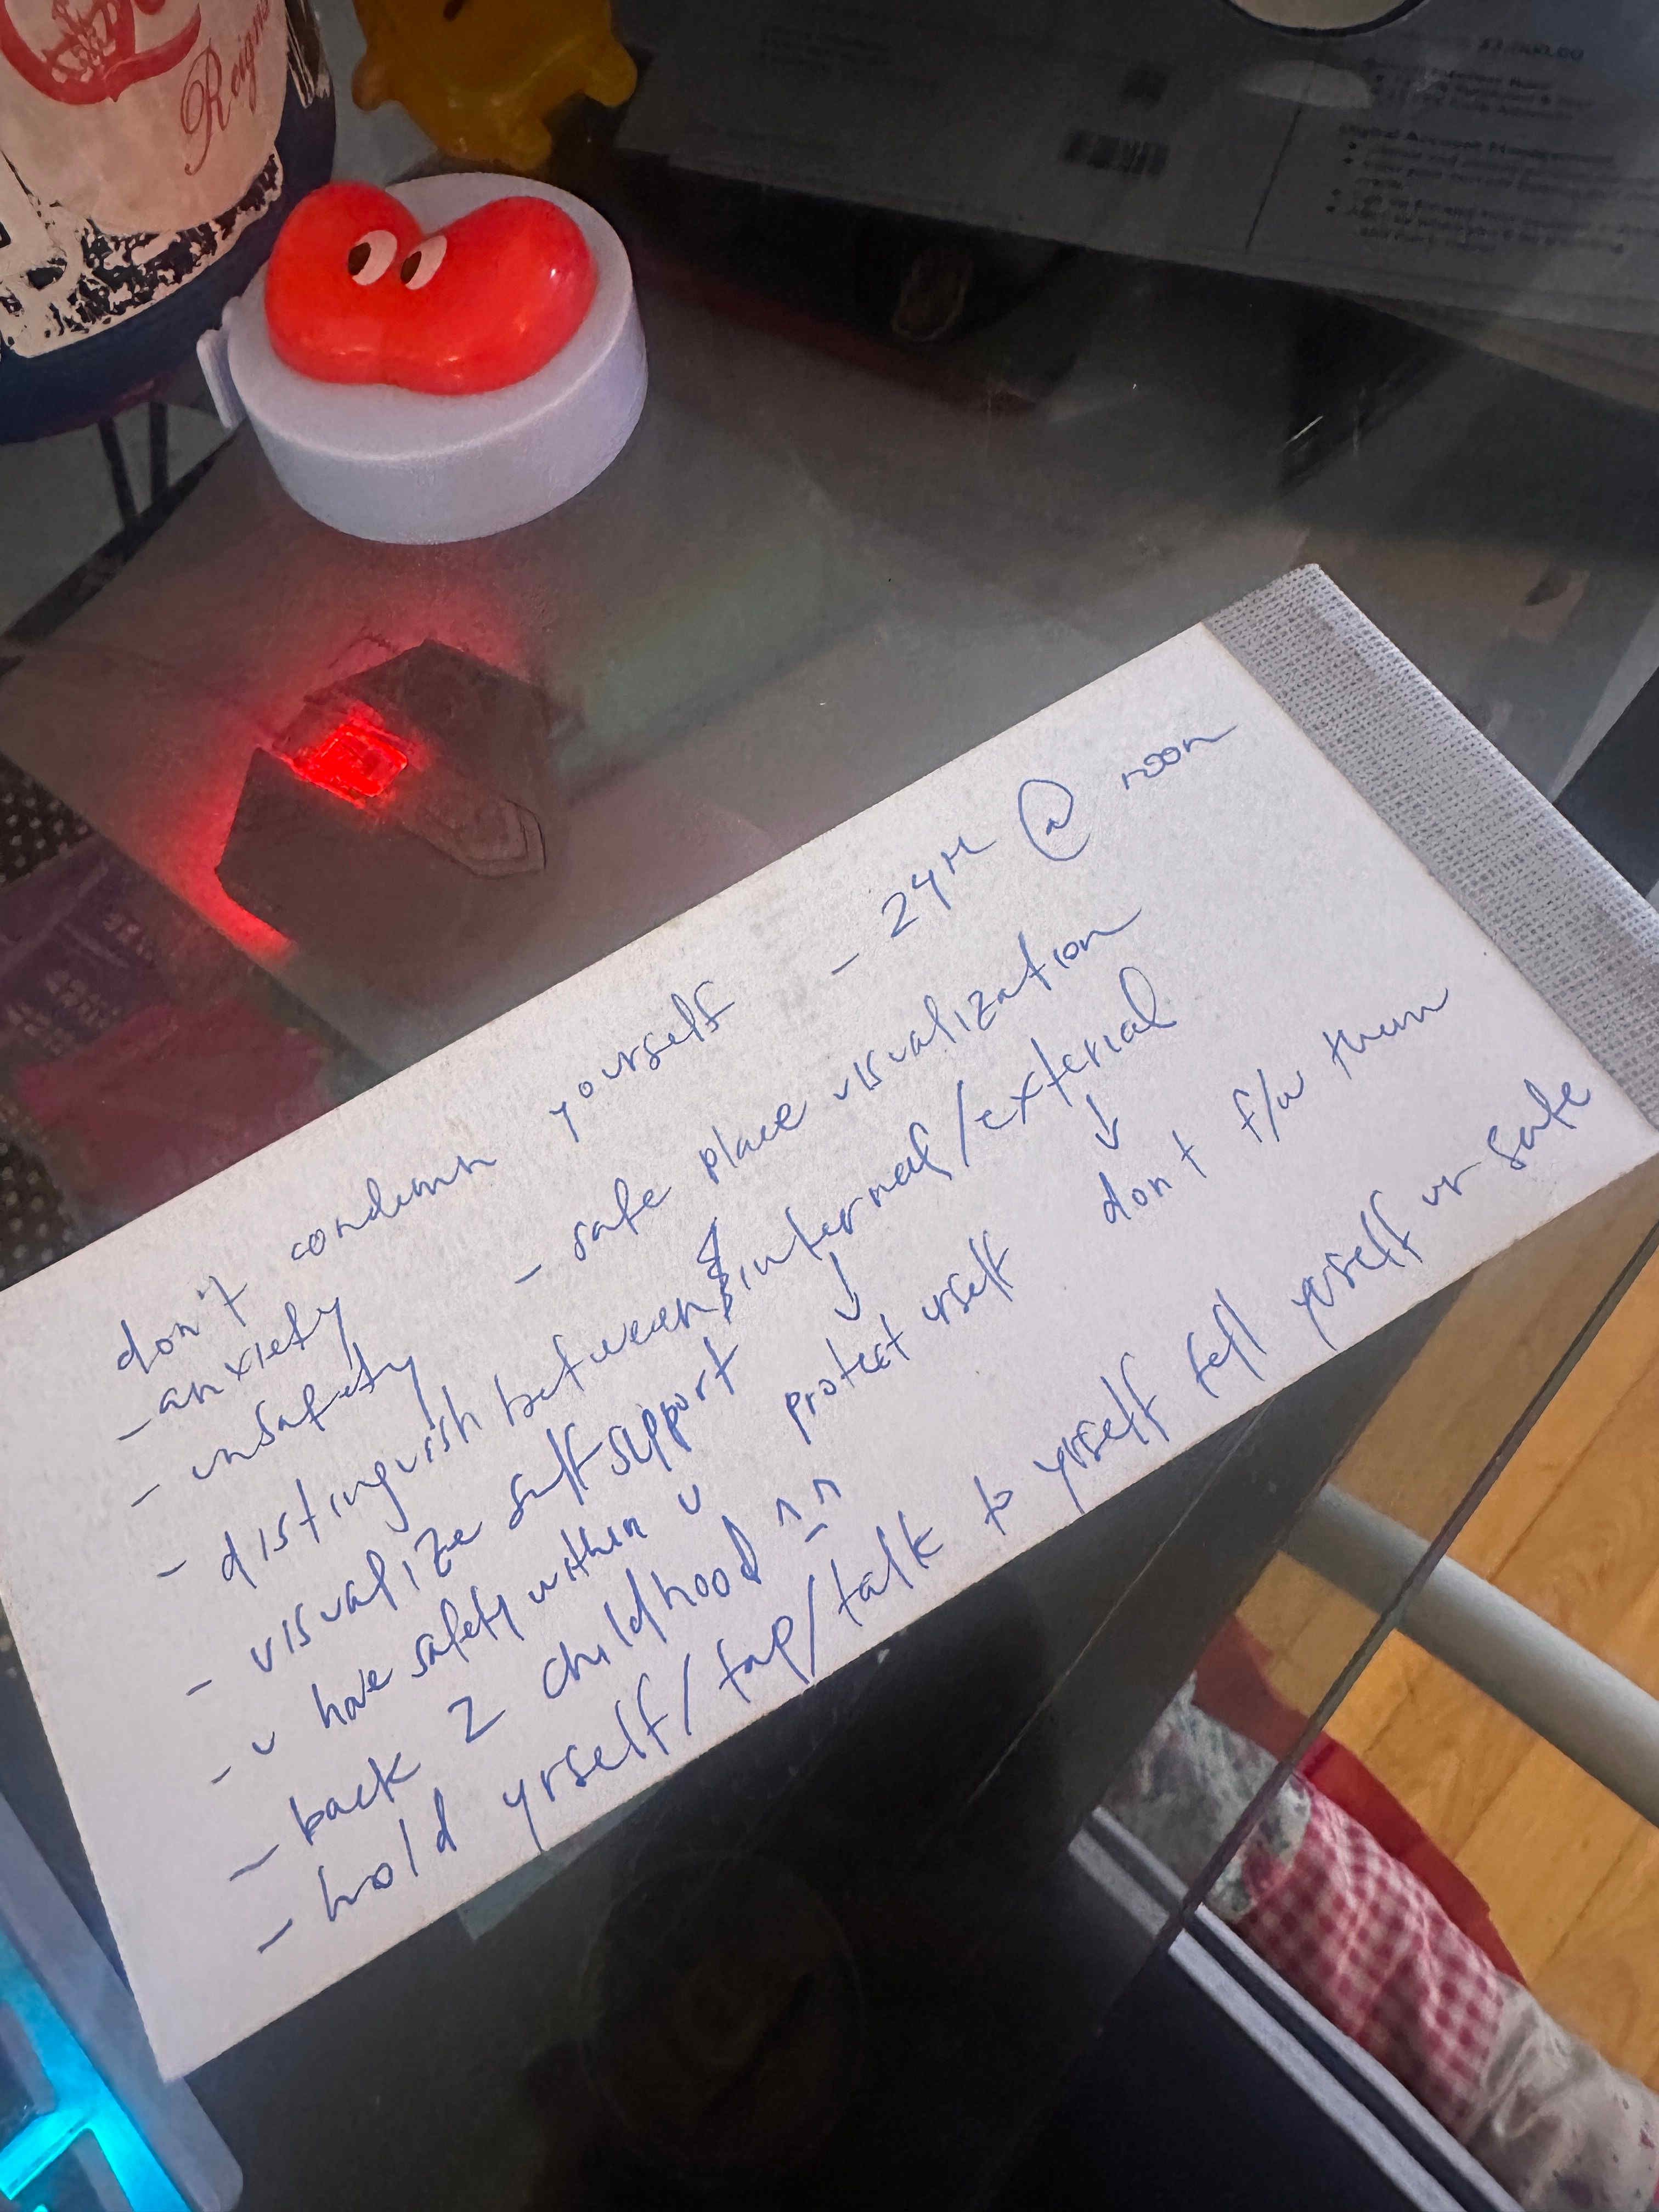 Reigns
don't condemn yourself - 24th @ noon
- anxiety
- unsafety - safe place visualization
- distinguish between internal/external
↓ ↓
protect urself don't f/w them
- visualize self support
- u have safety within u
- back 2 childhood ^_^
- hold yrself/tap/talk to yrself tell yrself ur safe